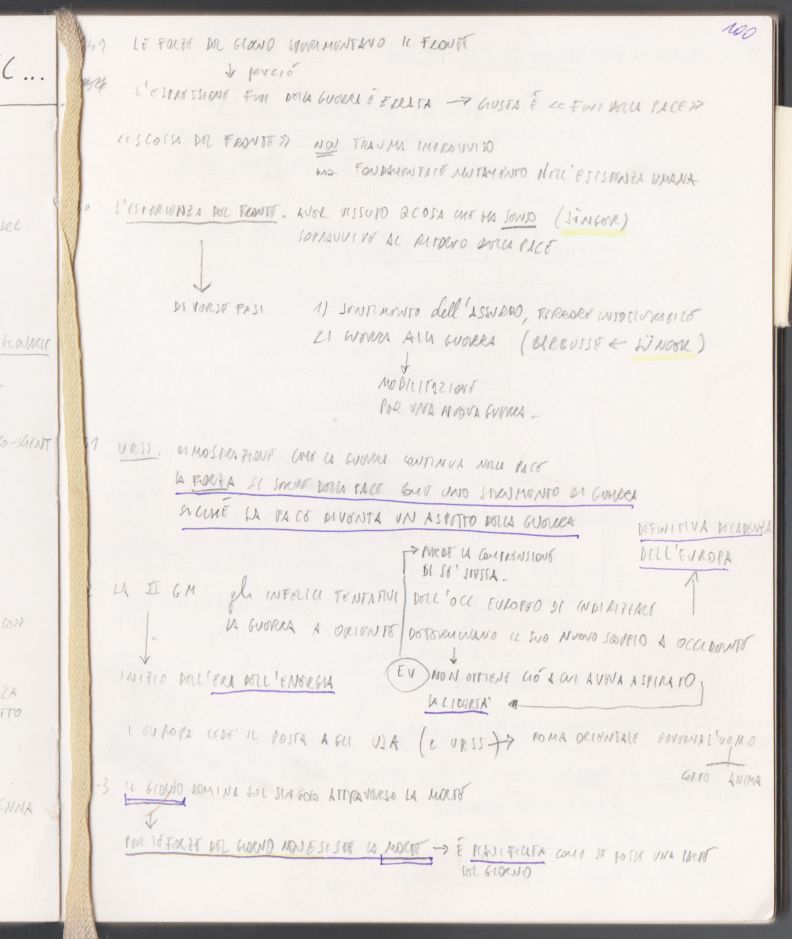 100
49 LE FORZE DEL GIORNO SPERIMENTANO IL FRONTE
↓ perciò
L'ESPRESSIONE FINI DELLA GUERRA È ERRATA → GIUSTA È << FINI DELLA PACE >>
<< SCOSSA DEL FRONTE >> NON TRAUMA IMPROVVISO
ma FONDAMENTALE MUTAMENTO NELL'ESISTENZA UMANA
L'ESPERIENZA DEL FRONTE. AVER VISSUTO QCOSA CHE HA SENSO (JÜNGER)
SOPRAVVIVE AL RITORNO DELLA PACE
DIVERSE FASI 1) SENTIMENTO dell'ASSURDO, TERRORE
2) GUERRA ALLA GUERRA (BARBUSSE ← JÜNGER)
↓
MOBILITAZIONE
PER UNA NUOVA GUERRA
URSS. DIMOSTRAZIONE COME LA GUERRA CONTINUA NELLA PACE
LA FORZA SI SERVE DELLA PACE COME UNO STRUMENTO DI GUERRA
SICCHÉ LA PACE DIVENTA UN ASPETTO DELLA GUERRA
DEFINITIVA DECADENZA
DELL'EUROPA
→ PERDE LA COMPRENSIONE
DI SE' STESSA
LA II GM gli INFELICI TENTATIVI DELL'OCC EUROPEO DI INDIRIZZARE
LA GUERRA A ORIENTE DETERMINANO IL SUO NUOVO SCOPPIO A OCCIDENTE
INIZIO DELL'ERA DELL'ENERGIA
EU NON OTTIENE CIÒ A CUI AVEVA ASPIRATO
LA LIBERTÀ
L'EUROPA CEDE IL POSTO AGLI USA (e URSS) → ROMA ORIENTALE GOVERNA L'UOMO
CORPO ANIMA
IL GIORNO DOMINA SUL SINGOLO ATTRAVERSO LA MORTE
↓
PER LE FORZE DEL GIORNO NON ESISTE LA MORTE → È PIANIFICATA COME SE FOSSE UNA PARTE
DEL GIORNO